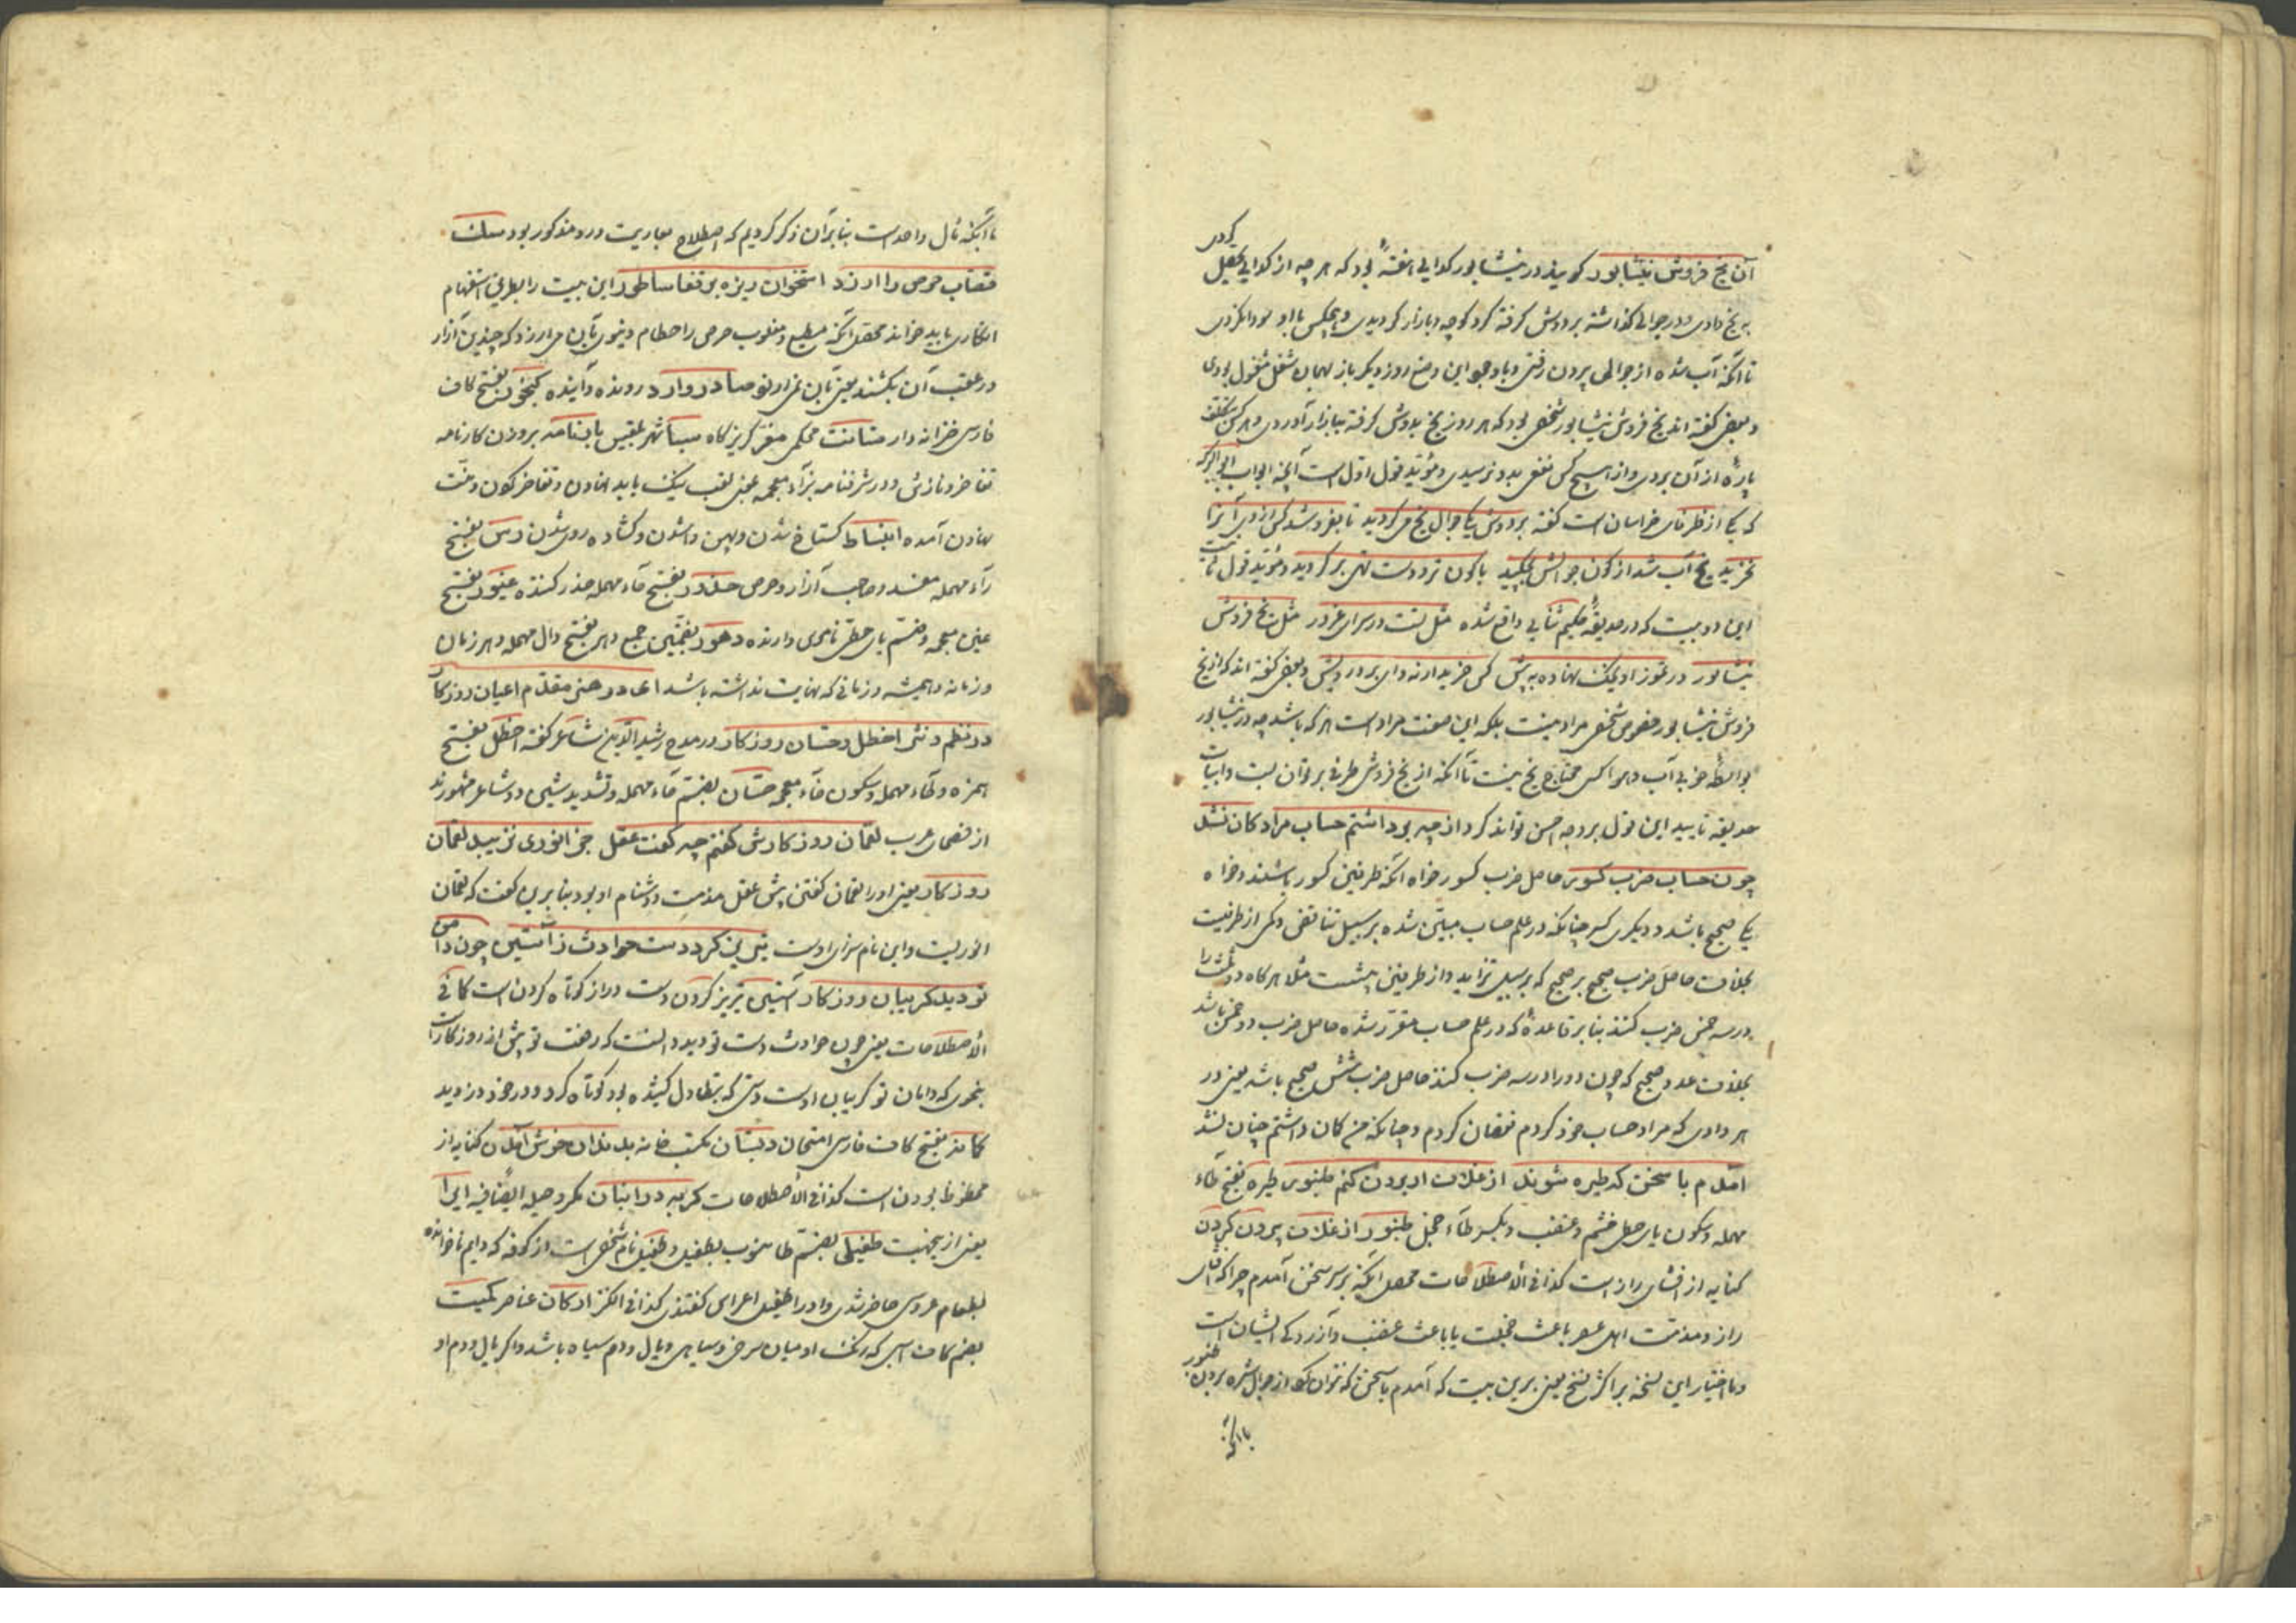 کردی
آن یخ فروش نیشابور کویند در نیشابور کدایی بود که هر چه از کدایی تحصیل
به یخ دادی و در جوالی کذاشته بر دوش کرفته کرد کوچه و بازار کردیدی و هیچکس با او سودا نکردی
تا آنکه آب شده از جوالی بیرون رفتی و با وجود این وضع روز دیکر باز بهمان شغل مشغول بودی
و بعضی کفته اند یخ فروش نیشابور شخصی بود که هر روز یخ بدوش کرفته ببازار آوردی و هر کس
پارهٔ از آن بردی و از هیچ کس نفعی بدو نرسیدی و مؤید قول اول است آنچه ابو
که یکی از ظرفای خراسان است کفته بر دوش یکی جوال یخ می کردید تا بفروشد کس از وی آنرا
نخرید یخ آب شد از کون جوالش بچکید با کون تر و دست تهی بر کردید و مؤید قول
این دو بیت که در حدیقهٔ حکیم سنایی واقع شده مثلت در سرای غرور مثل یخ فروش
نیشابور در تموز او یخک نهاده به پیش کس خریدار نه و ای درویش و بعضی کفته اند که از یخ
فروش نیشابور خصوص شخصی مراد نیست بلکه این صفت مراد است هر که باشد چه در نیشابور
بواسطهٔ خوبی آب و هوا کس محتاج یخ نیست تا آنکه از یخ فروش طرفی بر توان بست و ابیات
حدیقه تایید این قول بر وجه احسن تواند کرد از چه بود داشتم حساب مراد کان نشد
چون حساب ضرب کسور حاصل ضرب کسور خواه آنکه طرفین کسور باشند و خواه
یکی صحیح باشد و دیکری کسر چنانکه در علم حساب مبین شده بر سبیل تناقص و کمی از طرفیت
بخلاف حاصل ضرب صحیح بر صحیح که بر سبیل تزاید و از طرفین بیشست مثلا هر کاه دو ثلث را
در سه خمس ضرب کنند بنا بر قاعدهٔ که در علم حساب مقرر شده حاصل ضرب دو خمس باشد
بخلاف عدد صحیح که چون دو را در سه ضرب کنند حاصل ضرب شش صحیح باشد یعنی در
هر وادی که مراد حساب خود کردم نقصان کردم و چنانکه من کان داشتم چنان نشد
آمدم با سخن که طیره شوند از غلاف ار برون کنم طنبور طیره بفتح طاء
مهمله و سکون یای حطی خشم و غضب و بکسر طاء خجل طنبور از غلاف بیرون کردن
کنایه از افشای راز است کذا فی الاصطلاحات محصل آنکه بر سر سخن آمدم چرا که افشای
راز و مذمت اهل عصر باعث خجلت یا باعث غضب و آزردکی ایشان است
و ما اختیار این نسخه بر اکثر نسخ یعنی برین بیت که آمدم با سخن که نتوان کرد از جوال شره برون طنبور
با آنکه
با آنکه مآل واحد است بنا بر آن ذکر کردیم که اصطلاح عبارت درو مذکور بود سک
قصاب حرص را ارزد استخوان ریزه بر قفا ساطور این بیت را بطریق استفهام
انکاری باید خواند محصل آنکه مطیع و مغلوب حرص را حطام دنیوی بآن می ارزد که چندین آزار
در عقب آن بکشند یعنی بآن نمی ارزد صادر وارد رونده و آینده کنجور بفتح کاف
فارسی خزانه دار متانت محکمی مفر کریزکاه سبا شهر بلقیس بابنامه بر وزن کارنامه
تفاخر و نازش و در شرفنامه بزاء معجمه یعنی لقب نیک باید نهادن و تفاخر کون و منت
نهادن آمده انبساط کستاخ شدن و پهن واشدن و کشاده روی شدن رس بفتح
راء مهمله مفسد و صاحب آزار و حرص حذور بفتح حاء مهمله حذر کننده غیور بفتح
غین معجمه و ضم یای حطی نامدی دارنده دهور بضمتین جمع دهر بفتح دال مهمله و هر زمان
و زمانه و همیشه و زمانی که نهایت نداشته باشد ای در هنر مقدم اعیان روزکار
در نظم و نثر اخطل و حسان روزکار در مدح رشید الدین شاعر کفته اخطل بفتح
همزه و طاء مهمله و سکون خاء معجمه حسان بفتح حاء مهمله و تشدید سین دو شاعر مشهورند
از فصحای عرب لقمان روزکارش کفتم چه کفت عقل جز انوری نزیبد لقمان
روزکار یعنی او را لقمان کفتن پیش عقل مذمت و دشنام او بود بنا برین کفت که لقمان
انوریست و این نام سزای اوست تیریز کرد دست حوادث ز آستین چون دامن
تو دید کریبان روزکار آستین تیریز کردن دست دراز کوتاه کردن است کما فی
الاصطلاحات یعنی چون حوادث دست تو دید دانست که رفعت تو بیش از روزکار است
بنحوی که دامان تو کریبان اوست دستی که بتطاول کشیده بود کوتاه کرد و در خود دزدید
کاز بفتح کاف فارسی امتحان دبستان مکتب خانه بد ندان خوش آمدن کنایه از
محظوظ بودن است کذا فی الاصطلاحات کربه در انبان مکر و حیله ایضا فیه ایرا
یعنی ازین جهت طفیلی بضم طا منسوب بطفیل و طفیل نام شخصی است از کوفه که دایم ناخوانده
بطعام عروسی حاضر شدی و او را طفیل اعراس کفتندی کذا فی الکنز ارکان عناصر کمیت
بضم کاف اسبی که رنک او میان سرخی و سیاهی و یال و دم سیاه باشد و اکر یال و دم او